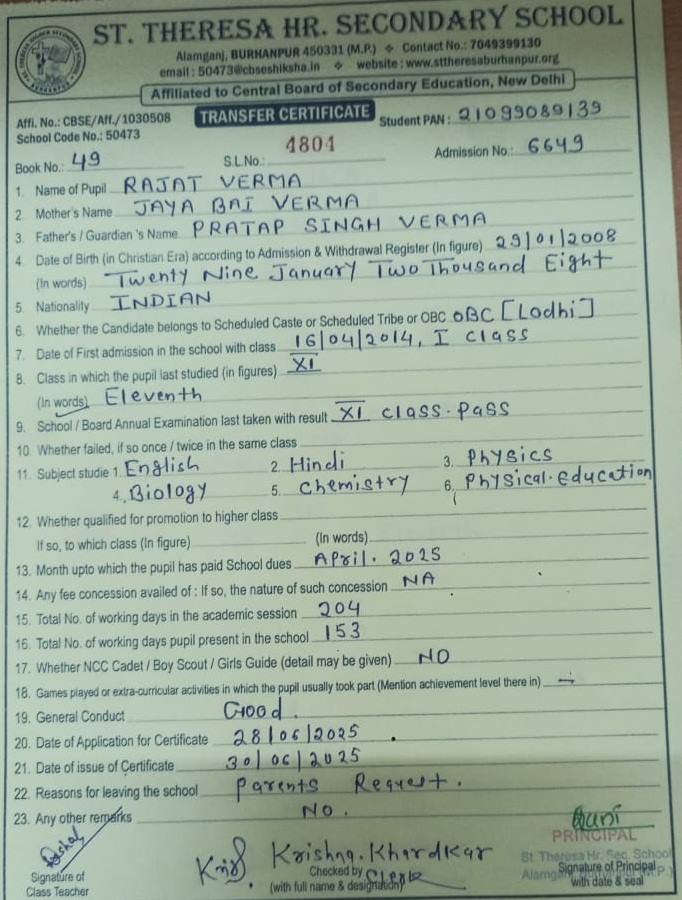 ST. THERESA HR. SECONDARY SCHOOL
Alamganj, BURHANPUR 450331 (M.P.) ❖ Contact No.: 7049399130
email : 50473@cbseshiksha.in ❖ website : www.sttheresaburhanpur.org
Affiliated to Central Board of Secondary Education, New Delhi
Affi. No.: CBSE/Aff./1030508 TRANSFER CERTIFICATE Student PAN : 21099089139
School Code No.: 50473
Book No.: 49 S.L.No.: 4804 Admission No.: 6649
1. Name of Pupil RAJAT VERMA
2. Mother's Name JAYA BAI VERMA
3. Father's / Guardian 's Name PRATAP SINGH VERMA
4. Date of Birth (in Christian Era) according to Admission & Withdrawal Register (In figure) 29/01/2008
(In words) Twenty Nine January Two Thousand Eight
5. Nationality INDIAN
6. Whether the Candidate belongs to Scheduled Caste or Scheduled Tribe or OBC OBC [Lodhi]
7. Date of First admission in the school with class 16/04/2014, I class
8. Class in which the pupil last studied (in figures) XI
(In words) Eleventh
9. School / Board Annual Examination last taken with result XI class. pass
10. Whether failed, if so once / twice in the same class
11. Subject studie 1. English 2. Hindi 3. Physics
4. Biology 5. Chemistry 6. Physical.education
12. Whether qualified for promotion to higher class
If so, to which class (In figure) (In words)
13. Month upto which the pupil has paid School dues April. 2025
14. Any fee concession availed of : If so, the nature of such concession NA
15. Total No. of working days in the academic session 204
16. Total No. of working days pupil present in the school 153
17. Whether NCC Cadet / Boy Scout / Girls Guide (detail may be given) NO
18. Games played or extra-curricular activities in which the pupil usually took part (Mention achievement level there in) —
19. General Conduct Good.
20. Date of Application for Certificate 28/06/2025
21. Date of issue of Certificate 30/06/2025
22. Reasons for leaving the school Parents Request.
23. Any other remarks NO.
PRINCIPAL
Krishna. Khardkar
St Theresa Hr. Sec. School
Signature of Checked by Clerk Signature of Principal
Class Teacher (with full name & designation) with date & seal